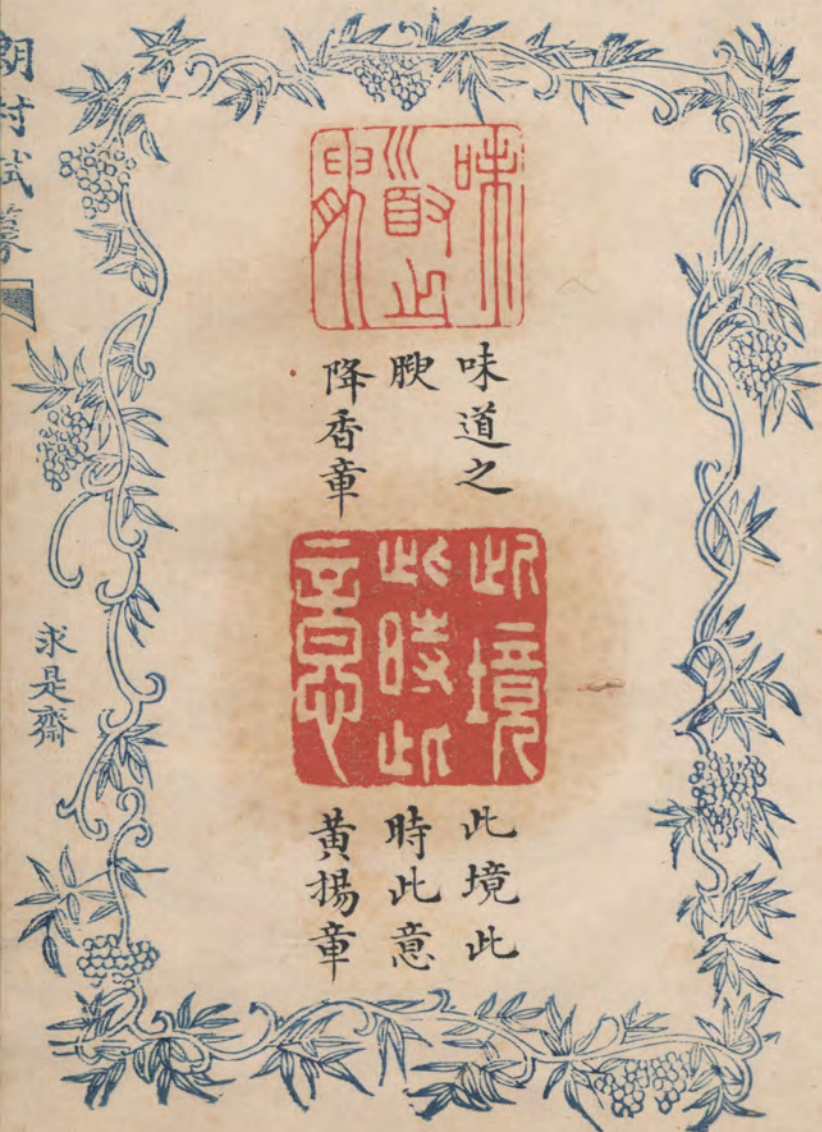 味
道之
腴
味道之
腴
降香章
此境
此時此
意
此境此
時此意
黄揚章
朗村試篆
求是齋